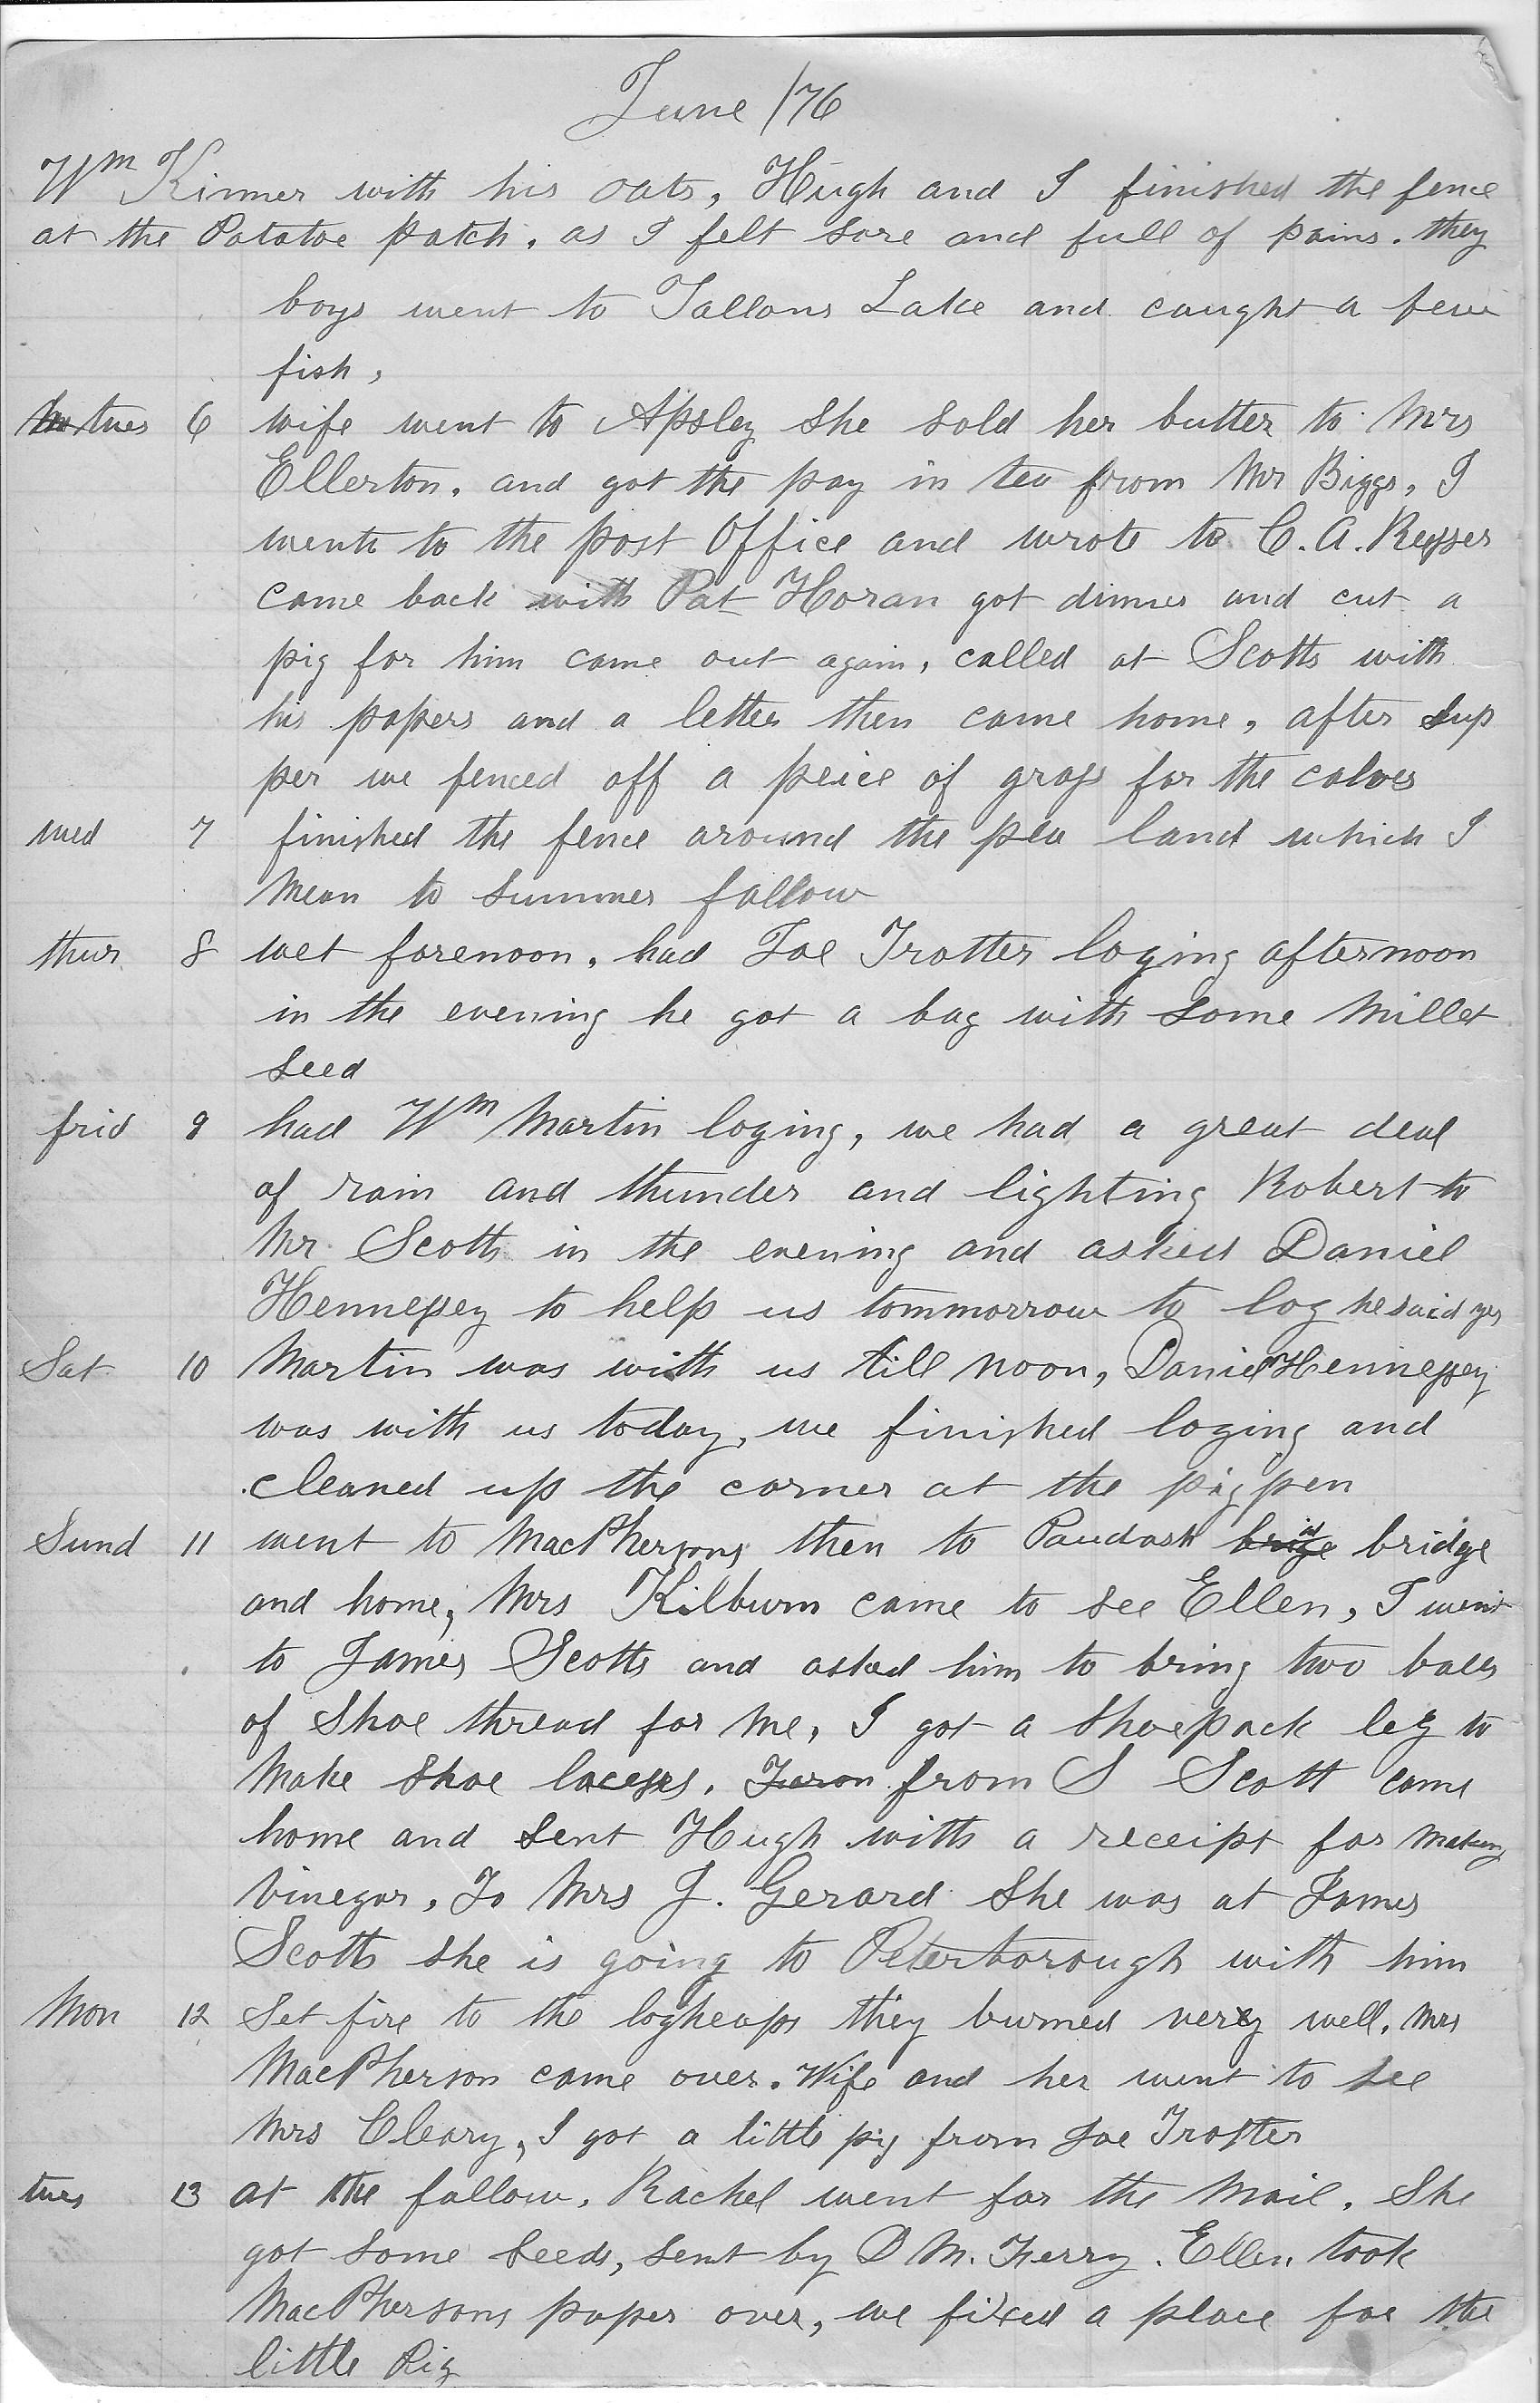 June /76
Wm Kinner with his oats, Hugh and I finished the fence
at the Potatoe patch. as I felt sore and full of pains. they
boys went to Tallons Lake and caught a few
fish,
tues 6 wife went to Apsley she sold her butter to Mrs
Ellerton. and got the pay in tea from Mr Biggs, I
went to the post Office and wrote to C. A. Keyser
came back with Pat Horan got dinner and cut a
pig for him came out again, called at Scotts with
his papers and a letter then came home, after sup
per we fenced off a peice of grass for the calves
wed 7 finished the fence around the pea land which I
mean to summer fallow
thur 8 wet forenoon, had Joe Trotter loging afternoon
in the evening he got a bag with some Millet
seed
frid 9 had Wm Martin loging, we had a great deal
of rain and thunder and lighting Robert to
Mr Scotts in the evening and asked Daniel
Hennessey to help us tommorrow to log he said yes
Sat 10 Martin was with us till noon, Daniel Hennessey
was with us today, we finished loging and
cleaned up the corner at the pig pen
Sund 11 went to MacPhersons then to Paudash brige bridge
and home, Mrs Kilburn came to see Ellen, I went
to James Scotts and asked him to bring two balls
of shoe thread for me, I got a shoepack leg to
make shoe laceses. from S Scott came
home and sent Hugh with a receipt for making
vinegar, To Mrs J. Gerard she was at James
Scotts she is going to Peterborough with him
Mon 12 Set fire to the logheaps they burned very well. Mrs
MacPherson came over. Wife and her went to see
Mrs Cleary, I got a little pig from Joe Trotter
tues 13 at the fallow. Rachel went for the Mail. She
got some seeds, sent by D M. Ferry. Ellen took
MacPhersons paper over, we fixed a place for the
little Pig